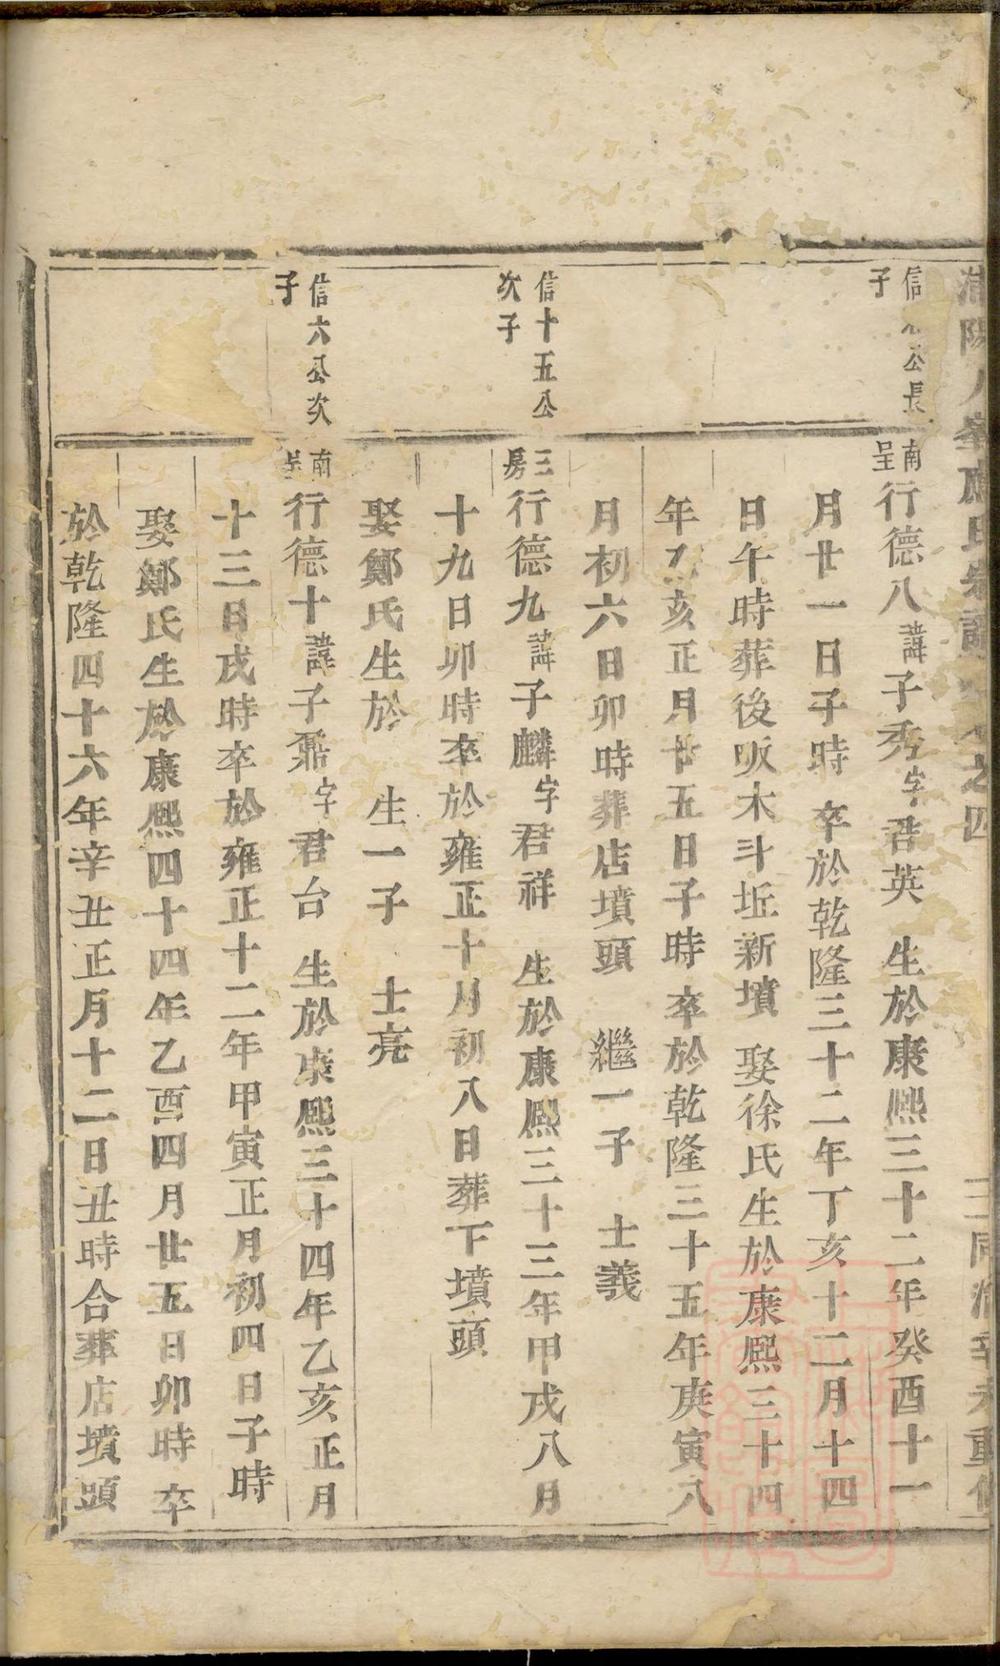 之四
重修
信 公長
子
南
呈
行德八諱子秀字君英 生於康熙三十二年癸酉十一
月廿一日子時 卒於乾隆三十二年丁亥十二月十四
日午時葬後坂木斗坵新墳 娶徐氏生於康熙三十四
年乙亥正月廿五日子時 卒於乾隆三十五年庚寅八
月初六日卯時葬店墳頭 繼一子 士義
信十五公
次子
三
房
行德九諱子麟字君祥 生於康熙三十三年甲戌八月
十九日卯時卒於雍正十月初八日葬下墳頭
娶鄭氏生於 生一子 士亮
信六公次
子
南
呈
行德十諱子鼐字君台 生於康熙三十四年乙亥正月
十三日戌時卒於雍正十二年甲寅正月初四日子時
娶鄭氏生於康熙四十四年乙酉四月廿五日卯時卒
於乾隆四十六年辛丑正月十二日丑時合葬店墳頭